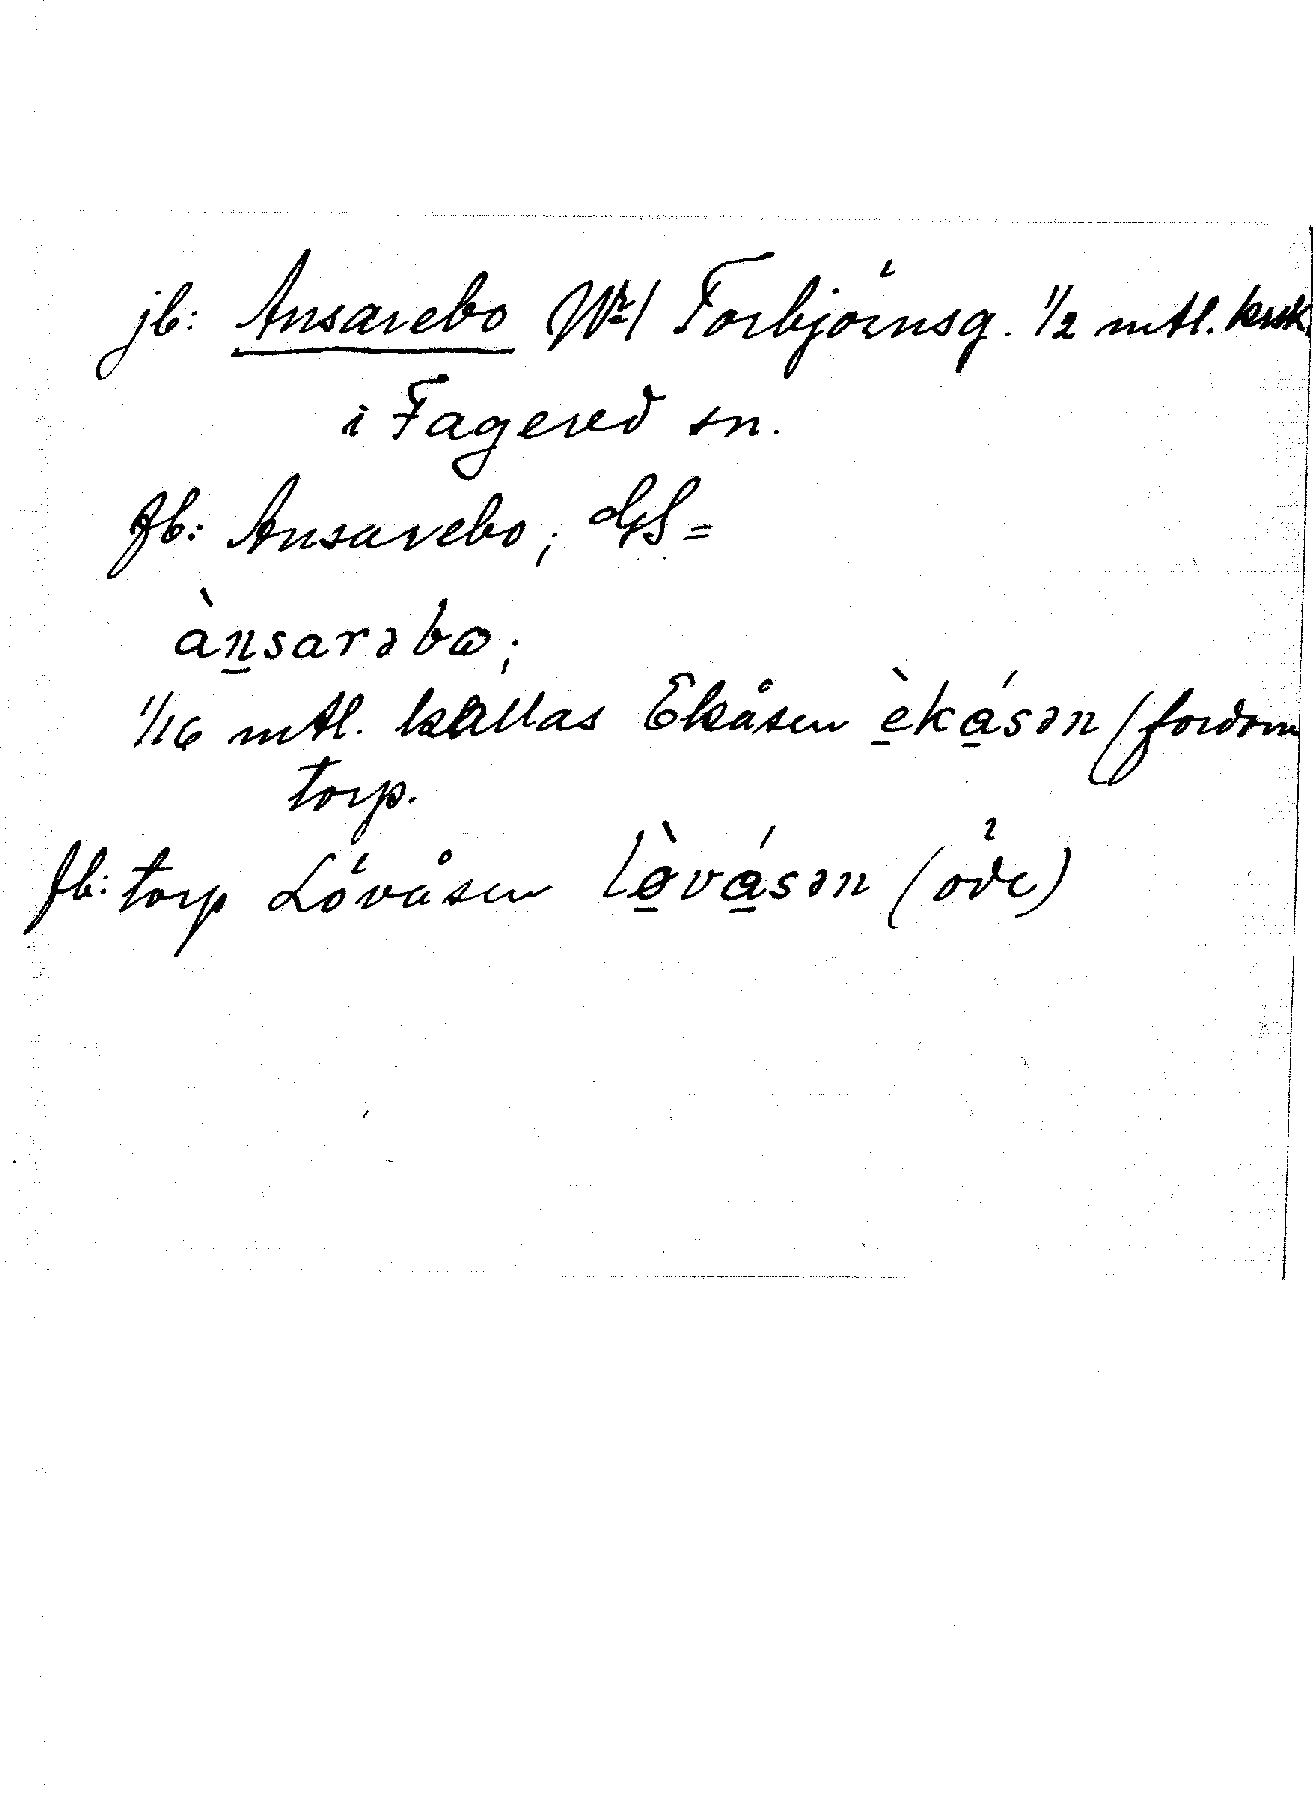 jb: Ansarebo Nr 1 Torbjörnsg. 1/2 mtl. krsk.
i Fagered sn.
fb: Ansarebo; GS=
àn̲sarəbɷ;
1/16 mtl. kallas Ekåsen è̲ká̲sən (fordom
torp.
fb: torp Lövåsen lø̲̀vá̲sən (öde)